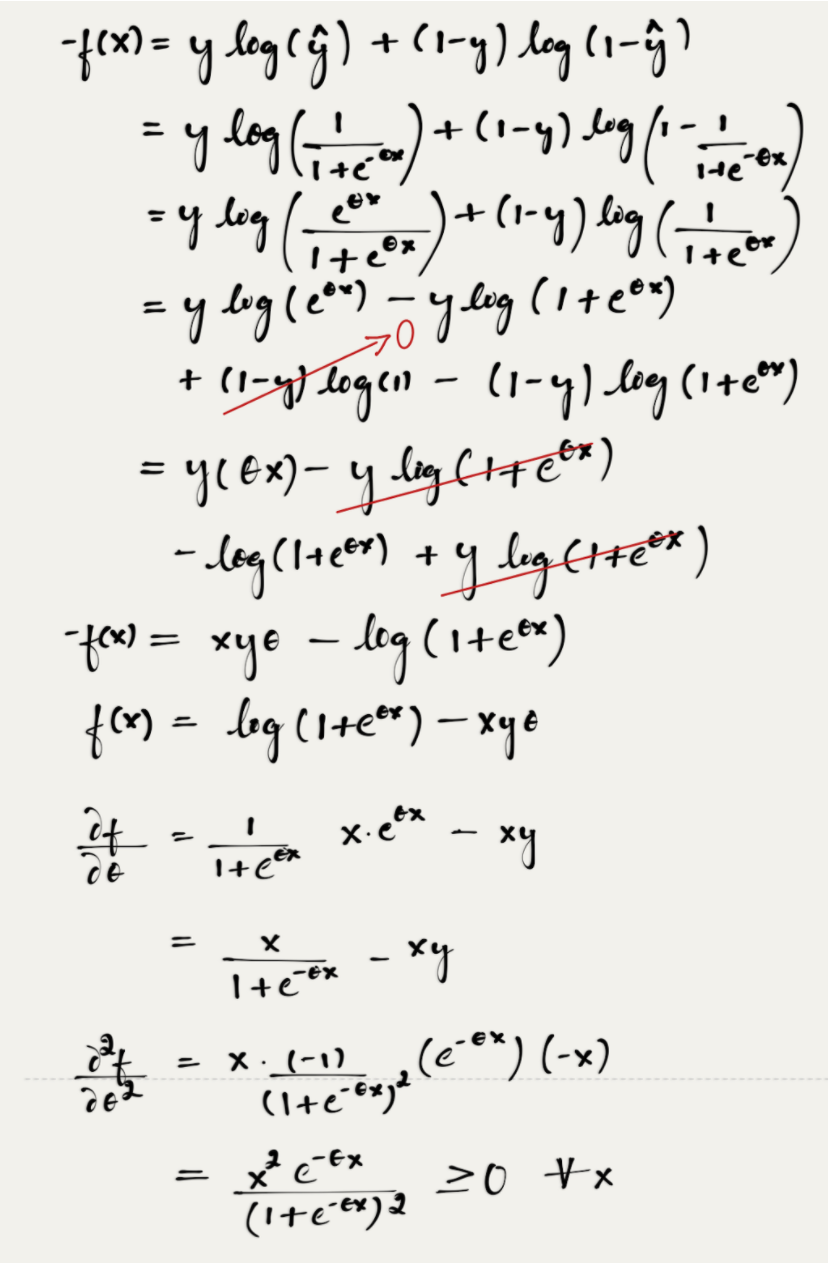 -f(x) = y log(ŷ) + (1-y) log (1-ŷ)
= y log(1/(1+e^-θx)) + (1-y) log(1 - 1/(1+e^-θx))
= y log(e^θx/(1+e^θx)) + (1-y) log(1/(1+e^θx))
= y log(e^θx) - y log(1+e^θx)
0
+ (1-y) log(1) - (1-y) log(1+e^θx)
= y(θx) - y log(1+e^θx)
- log(1+e^θx) + y log(1+e^θx)
-f(x) = xyθ - log(1+e^θx)
f(x) = log(1+e^θx) - xyθ
∂f/∂θ = 1/(1+e^θx) x·e^θx - xy
= x/(1+e^-θx) - xy
∂²f/∂θ² = x · (-1)/(1+e^-θx)² (e^-θx) (-x)
= x² e^-θx/(1+e^-θx)² ≥ 0 ∀ x